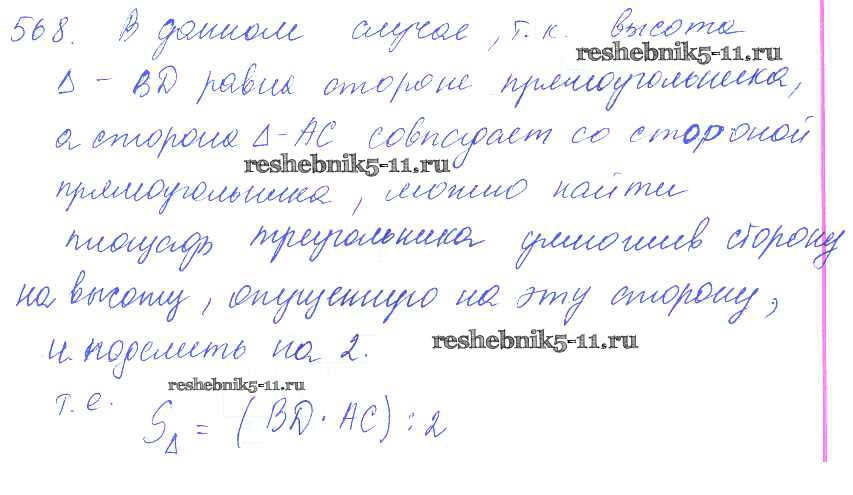 568. В данном случае, т.к. высота
reshebnik5-11.ru
Δ - BD равна стороне прямоугольника,
а сторона Δ - AC совпадает со стороной
reshebnik5-11.ru
прямоугольника, можно найти
площадь треугольника умножив сторону
на высоту, опущенную на эту сторону,
и поделить на 2.
reshebnik5-11.ru
reshebnik5-11.ru
т.е.
S_Δ = (BD · AC) : 2